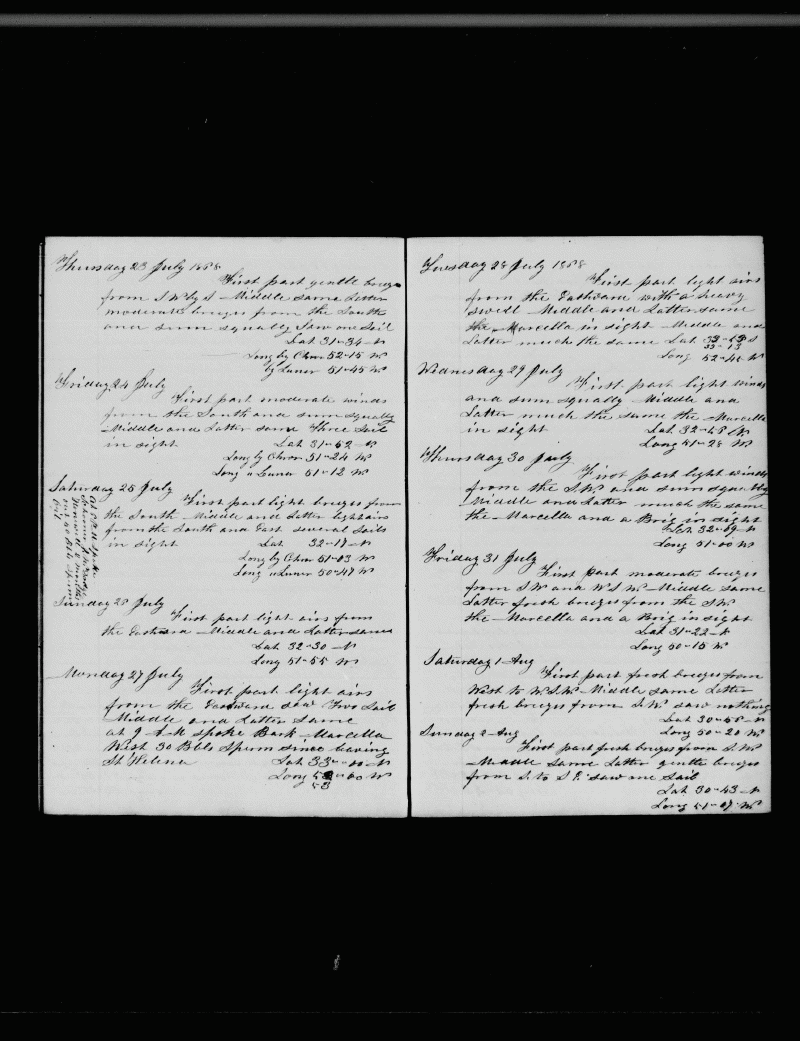 Thursday 23 July 1868
First part gentle breeze
from S W by S Middle same Latter
moderate breezes from the South
and sum squally Saw one Sail
Lat 31-34 N
Long by Chron 52-15 W
by Lunar 51-45 W
Friday 24 July
First part moderate winds
from the South and sum squally
Middle and Latter same Three Sail
in sight Lat 31-52 N
Long by Chron 51-24 W
Long " Lunar 51-12 W
Saturday 25 July
First part light breezes from
the South Middle and Latter light airs
from the South and East several Sails
in sight Lat 32-17 N
Long by Chron 51-03 W
Long " Lunar 50-47 W
At 5 P M Spoke
Schooner
months
out 40 Bbls Sperm
Oil
Sunday 26 July
First part light airs from
the Eastward Middle and Latter same
Lat 32-30 N
Long 51-55 W
Monday 27 July
First part light airs
from the Eastward saw Two Sail
Middle and Latter same
at 9 A.M spoke Bark Marcella
West 30 Bbls Sperm since leaving
St Helena Lat 33-00 N
Long 52-00 W
53
Tuesday 28 July 1868
First part light airs
from the Eastward with a heavy
swell Middle and Latter same
the Marcella in sight Middle and
Latter much the same Lat
33-13
Long 52-40 W
Wednesday 29 July
First part light winds
and sum squally Middle and
Latter much the same the Marcella
in sight Lat 32-48 N
Long 51-28 W
Thursday 30 July
First part light winds
from the S.W. and sum squally
Middle and Latter much the same
the Marcella and a Brig in sight
Lat 32-09 N
Long 51-00 W
Friday 31 July
First part moderate breezes
from S W and W S W Middle same
Latter fresh breezes from the S W
the Marcella and a Brig in sight
Lat 31-22 N
Long 50-15 W
Saturday 1 Aug
First part fresh breezes from
West to W.S.W Middle same Latter
fresh breezes from S.W saw nothing
Lat 30-58 N
Long 50-20 W
Sunday 2 Aug
First part fresh breezes from S. W
Middle same Latter gentle breezes
from S. to S E. saw one Sail
Lat 30-43 N
Long 51-07 W